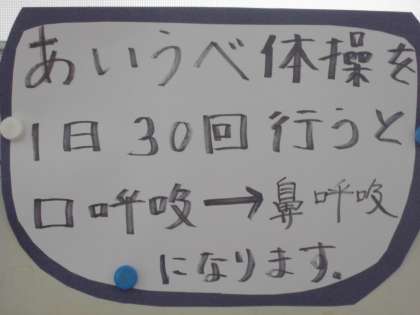 あいうべ体操を
1日30回行うと
口呼吸→鼻呼吸
になります。